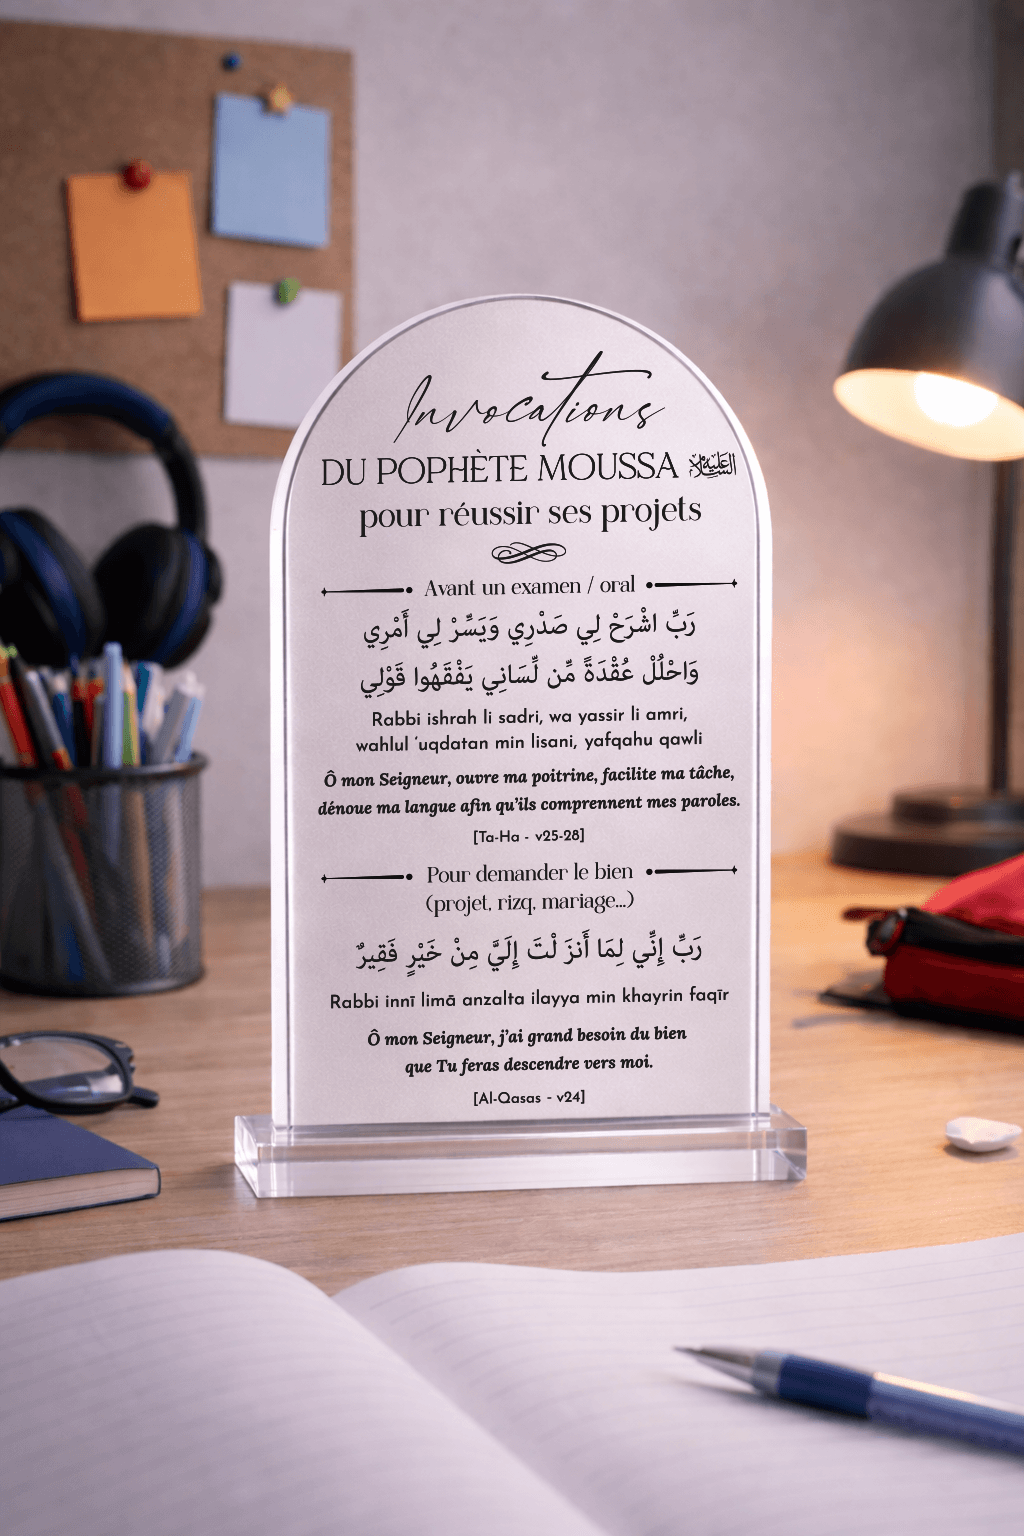 Invocations
DU POPHÈTE MOUSSA عليه السلام
pour réussir ses projets
Avant un examen / oral
رَبِّ اشْرَحْ لِي صَدْرِي وَيَسِّرْ لِي أَمْرِي
وَاحْلُلْ عُقْدَةً مِّن لِّسَانِي يَفْقَهُوا قَوْلِي
Rabbi ishrah li sadri, wa yassir li amri,
wahlul ‘uqdatan min lisani, yafqahu qawli
Ô mon Seigneur, ouvre ma poitrine, facilite ma tâche,
dénoue ma langue afin qu’ils comprennent mes paroles.
[Ta-Ha - v25-28]
Pour demander le bien
(projet, rizq, mariage...)
رَبِّ إِنِّي لِمَا أَنزَ لْتَ إِلَيَّ مِنْ خَيْرٍ فَقِيرٌ
Rabbi innī limā anzalta ilayya min khayrin faqīr
Ô mon Seigneur, j’ai grand besoin du bien
que Tu feras descendre vers moi.
[Al-Qasas - v24]